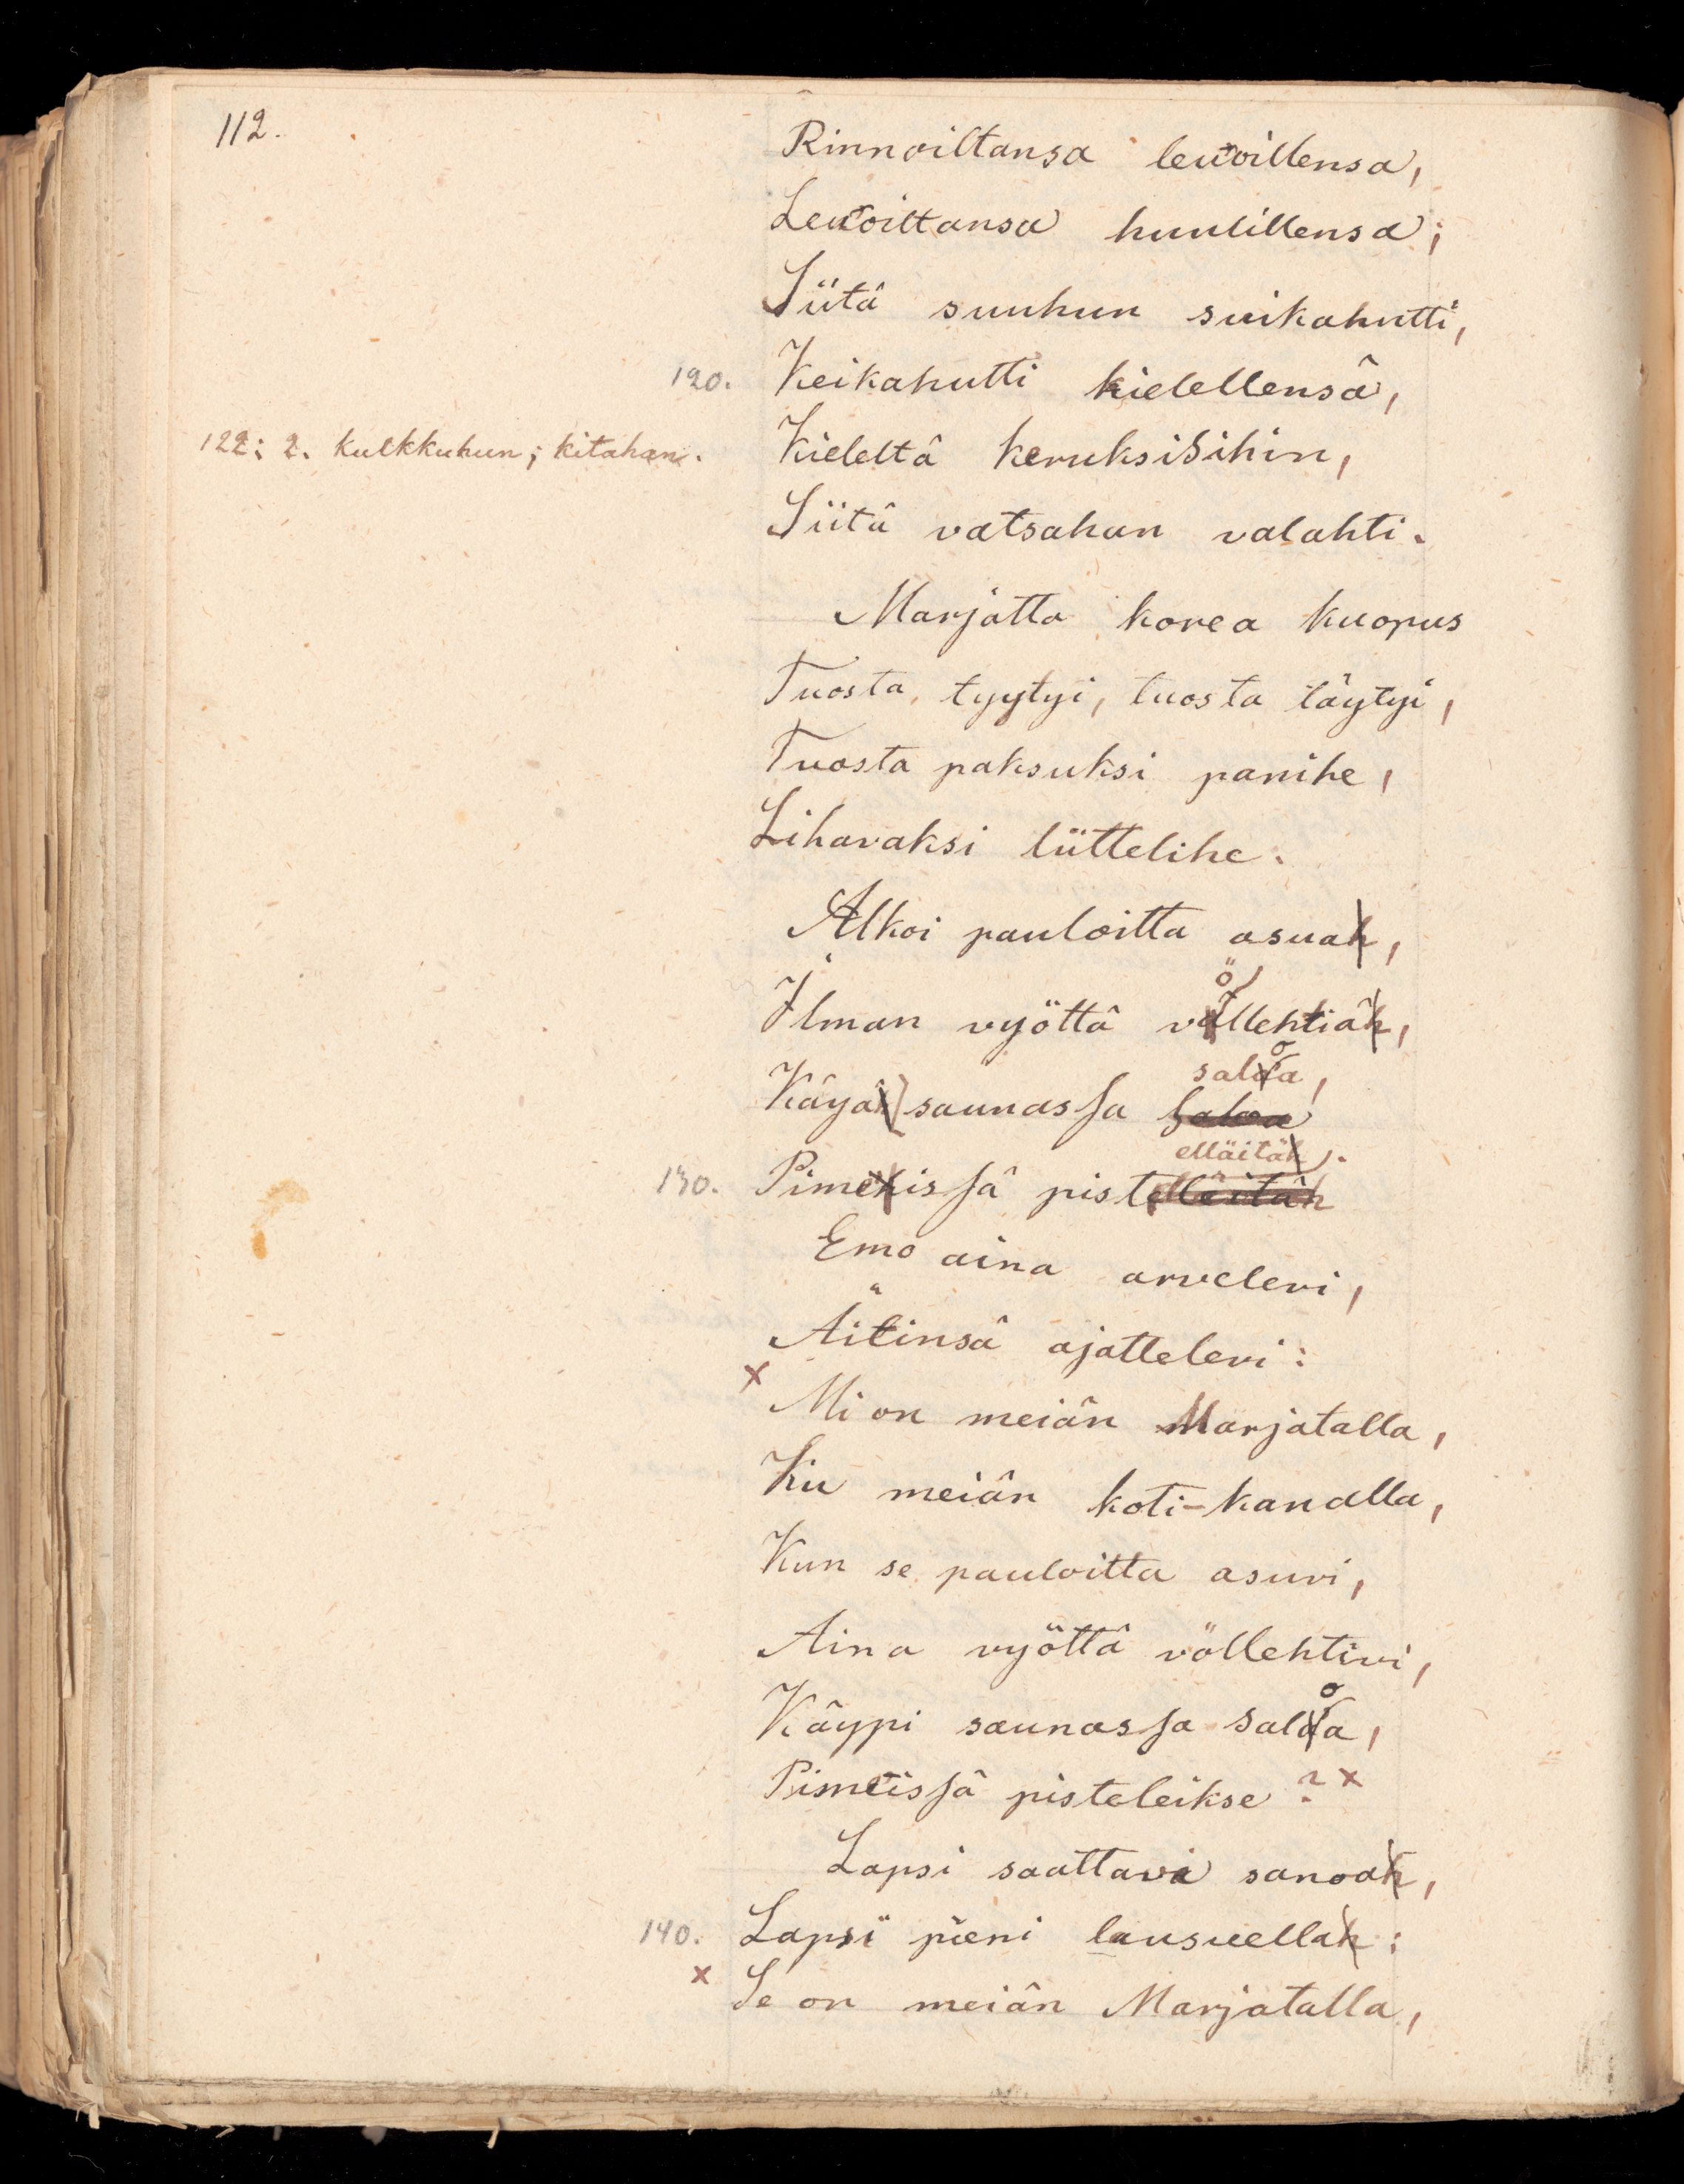 112.
Rinnoiltansa leuoillensa,
Leuoiltansa huulillensa;
Siitä suuhun suikahutti,
120. Keikahutti kielellensä,
122: 2. kulkkuhun; kitahan. Kieleltä keruksisihin,
Siitä vatsahan valahti.
Marjatta korea kuopus
Tuosta tyytyi, tuosta täytyi,
Tuosta paksuksi panihe,
Lihavaksi liittelihe.
Alkoi pauloitta asuah,
ö
Ilman vyöttä völlehtiäh,
saloa,
Käyä saunassa saloa
elläitäh.
130. Pimeissä pistelleitäh
Emo aina arvelevi,
Äitinsä ajattelevi:
x Mi on meiän Marjatalla,
Ku meiän koti-kanalla,
Kun se pauloitta asuvi,
Aina vyöttä völlehtivi,
o
Käypi saunassa saloa,
Pimeissä pisteleikse? x
Lapsi saattavi sanoah,
140. Lapsi pieni lausuellah:
x Se on meiän Marjatalla,